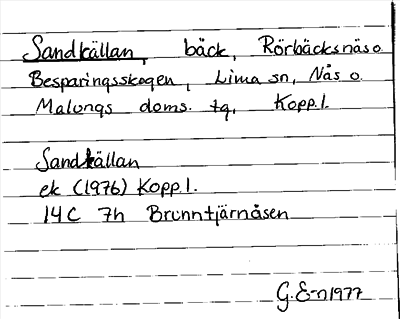 Sandkällan, bäck, Rörbäcksnäs o.
Besparingsskogen, Lima sn, Nås o.
Malungs doms. tg, Kopp.l.
Sandkällan
ek (1976) Kopp.l.
14C 7h Brunntjärnåsen
G.E-n 1977